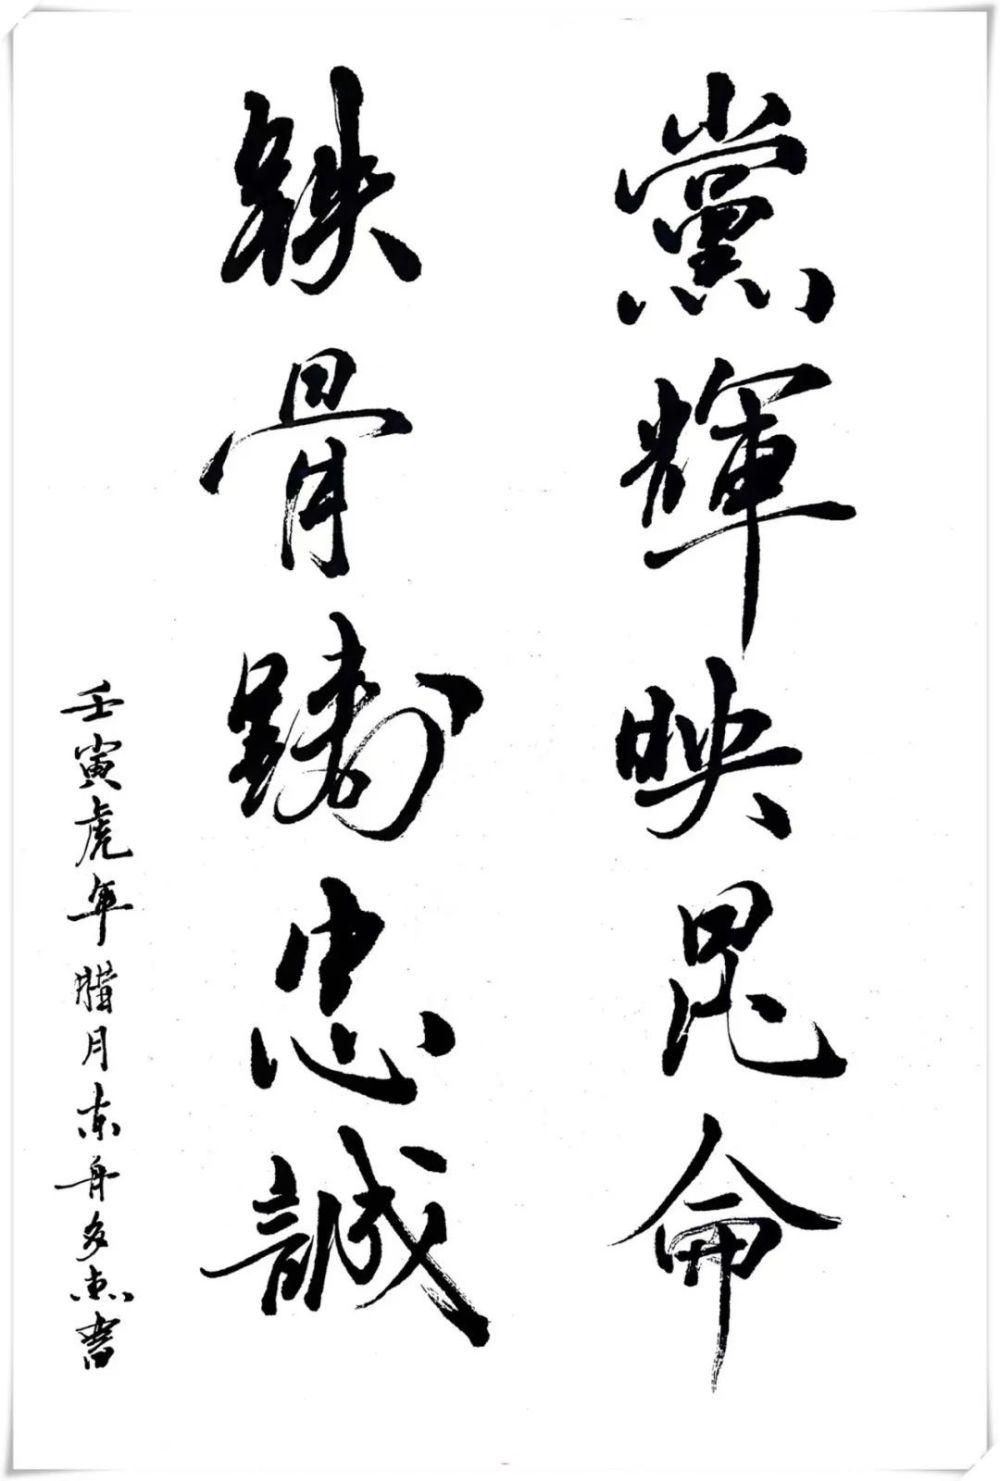 黨輝映昆侖
鉄骨鑄忠誠
壬寅虎年臘月东舟多杰書